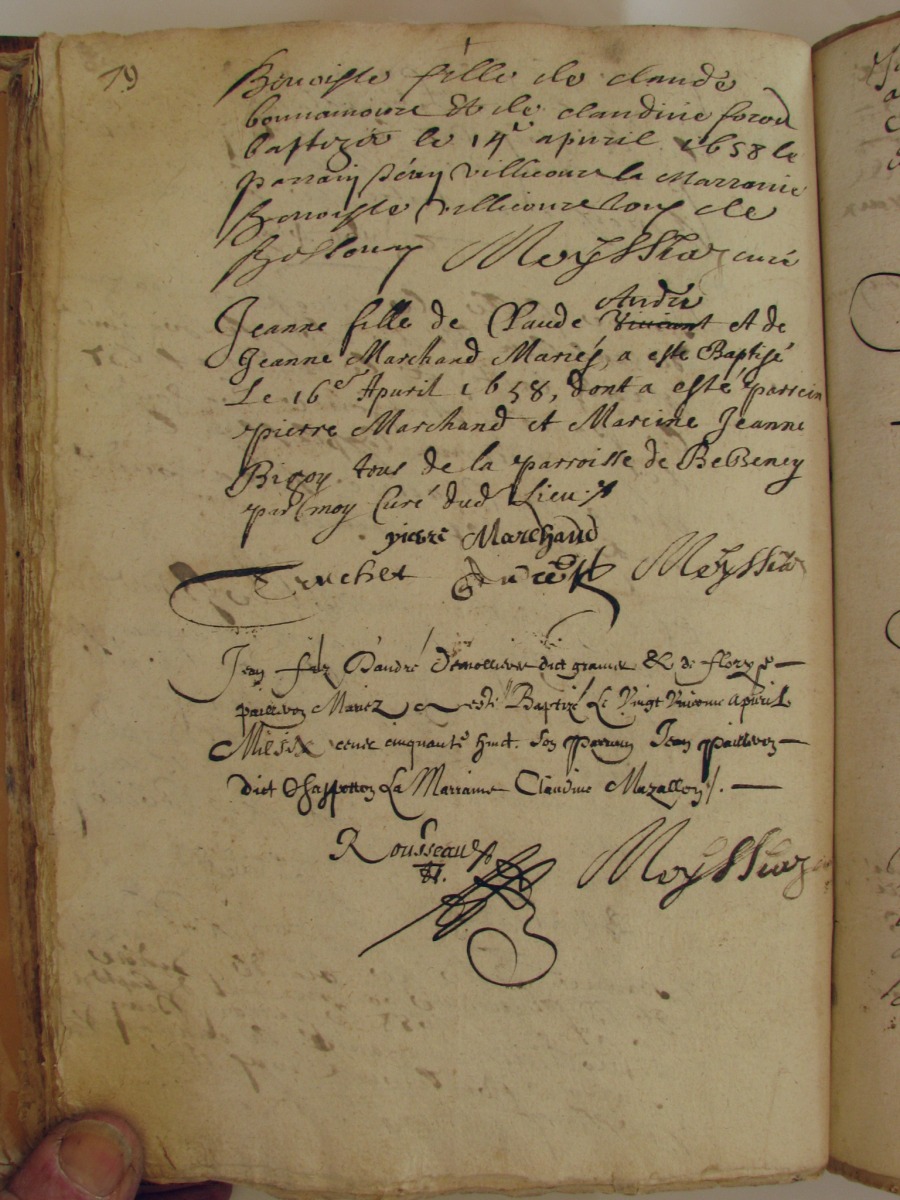 79
Benoiste fille de claude
bonnamour Et de claudine
baptizée le 14e apuril 1658 le
parrain villecourt la Marraine
Benoiste villecourt tous de
Meyssiat curé
André
Jeanne fille de Claude Vincent et de
Jeanne Marchand Mariés, a esté Baptisé
Le 16e Apuril 1658, dont a esté parrein
pierre Marchand et Mareine Jeanne
tous de la parroisse de
par moy Curé dud Lieu
pierre Marchand
Truchet Meyssiat
Jean filz D'andré Demolliere dict et de
Mariez a esté Baptizé Le Vingt Apuril
Mil six cent cinquante huict. Son parrain Jean
dict La Marraine Claudine Mazallon
Rousseau Meyssiat